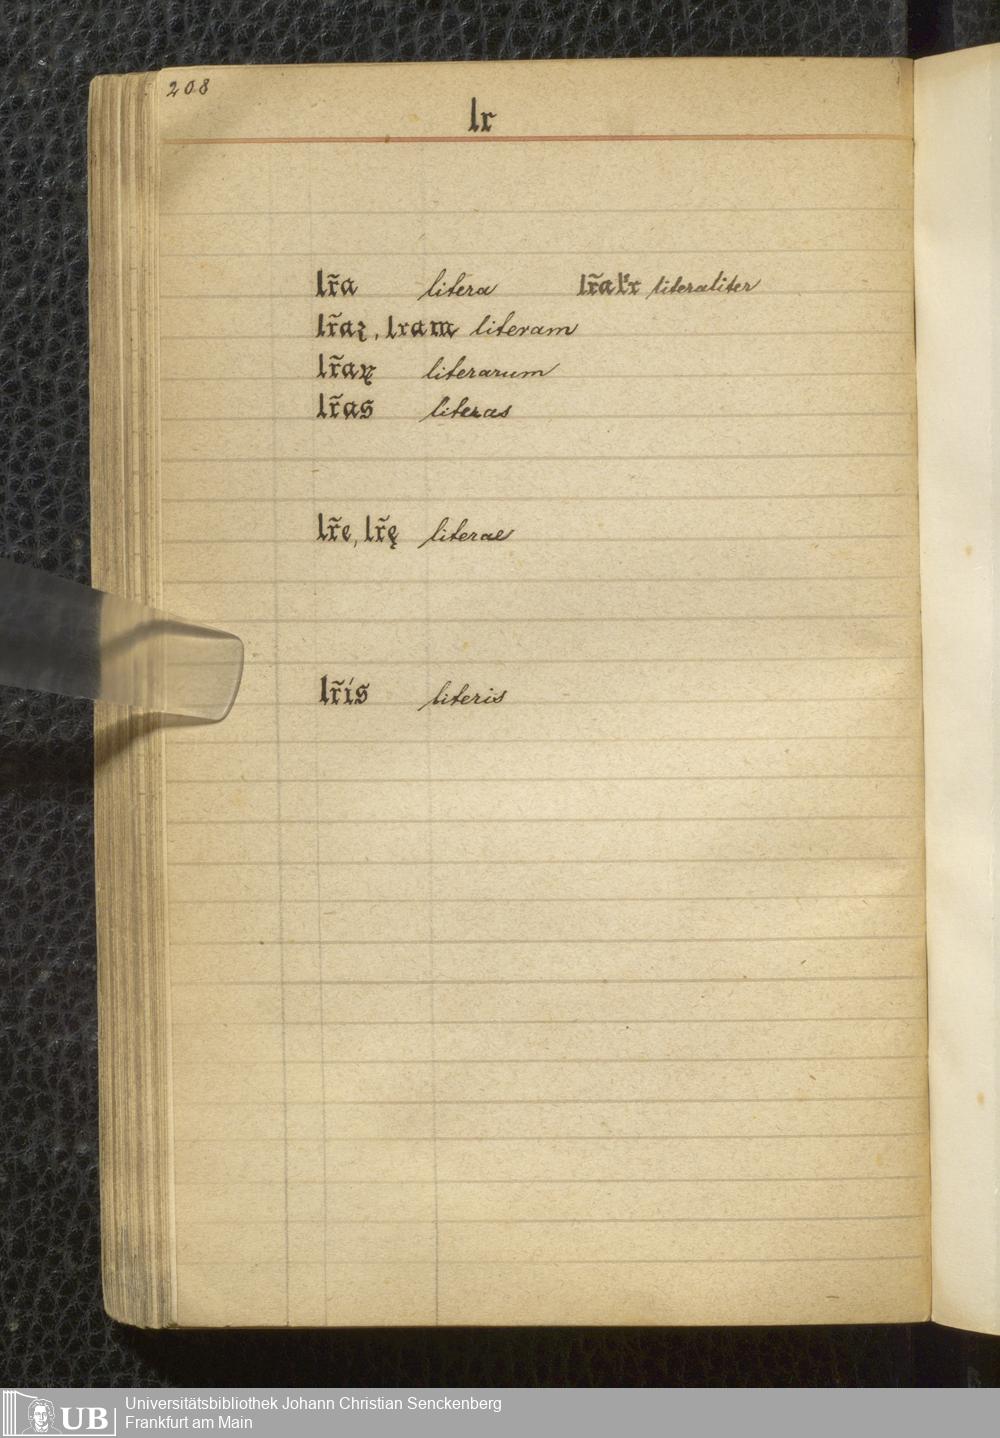 208
lr
lr̃a litera lr̃al'r literaliter
lr̃aꝫ, lram literam
lr̃aꝝ literarum
lr̃as literas
lr̃e, lr̃ę literae
lr̃is literis
Universitätsbibliothek Johann Christian Senckenberg
Frankfurt am Main
UB